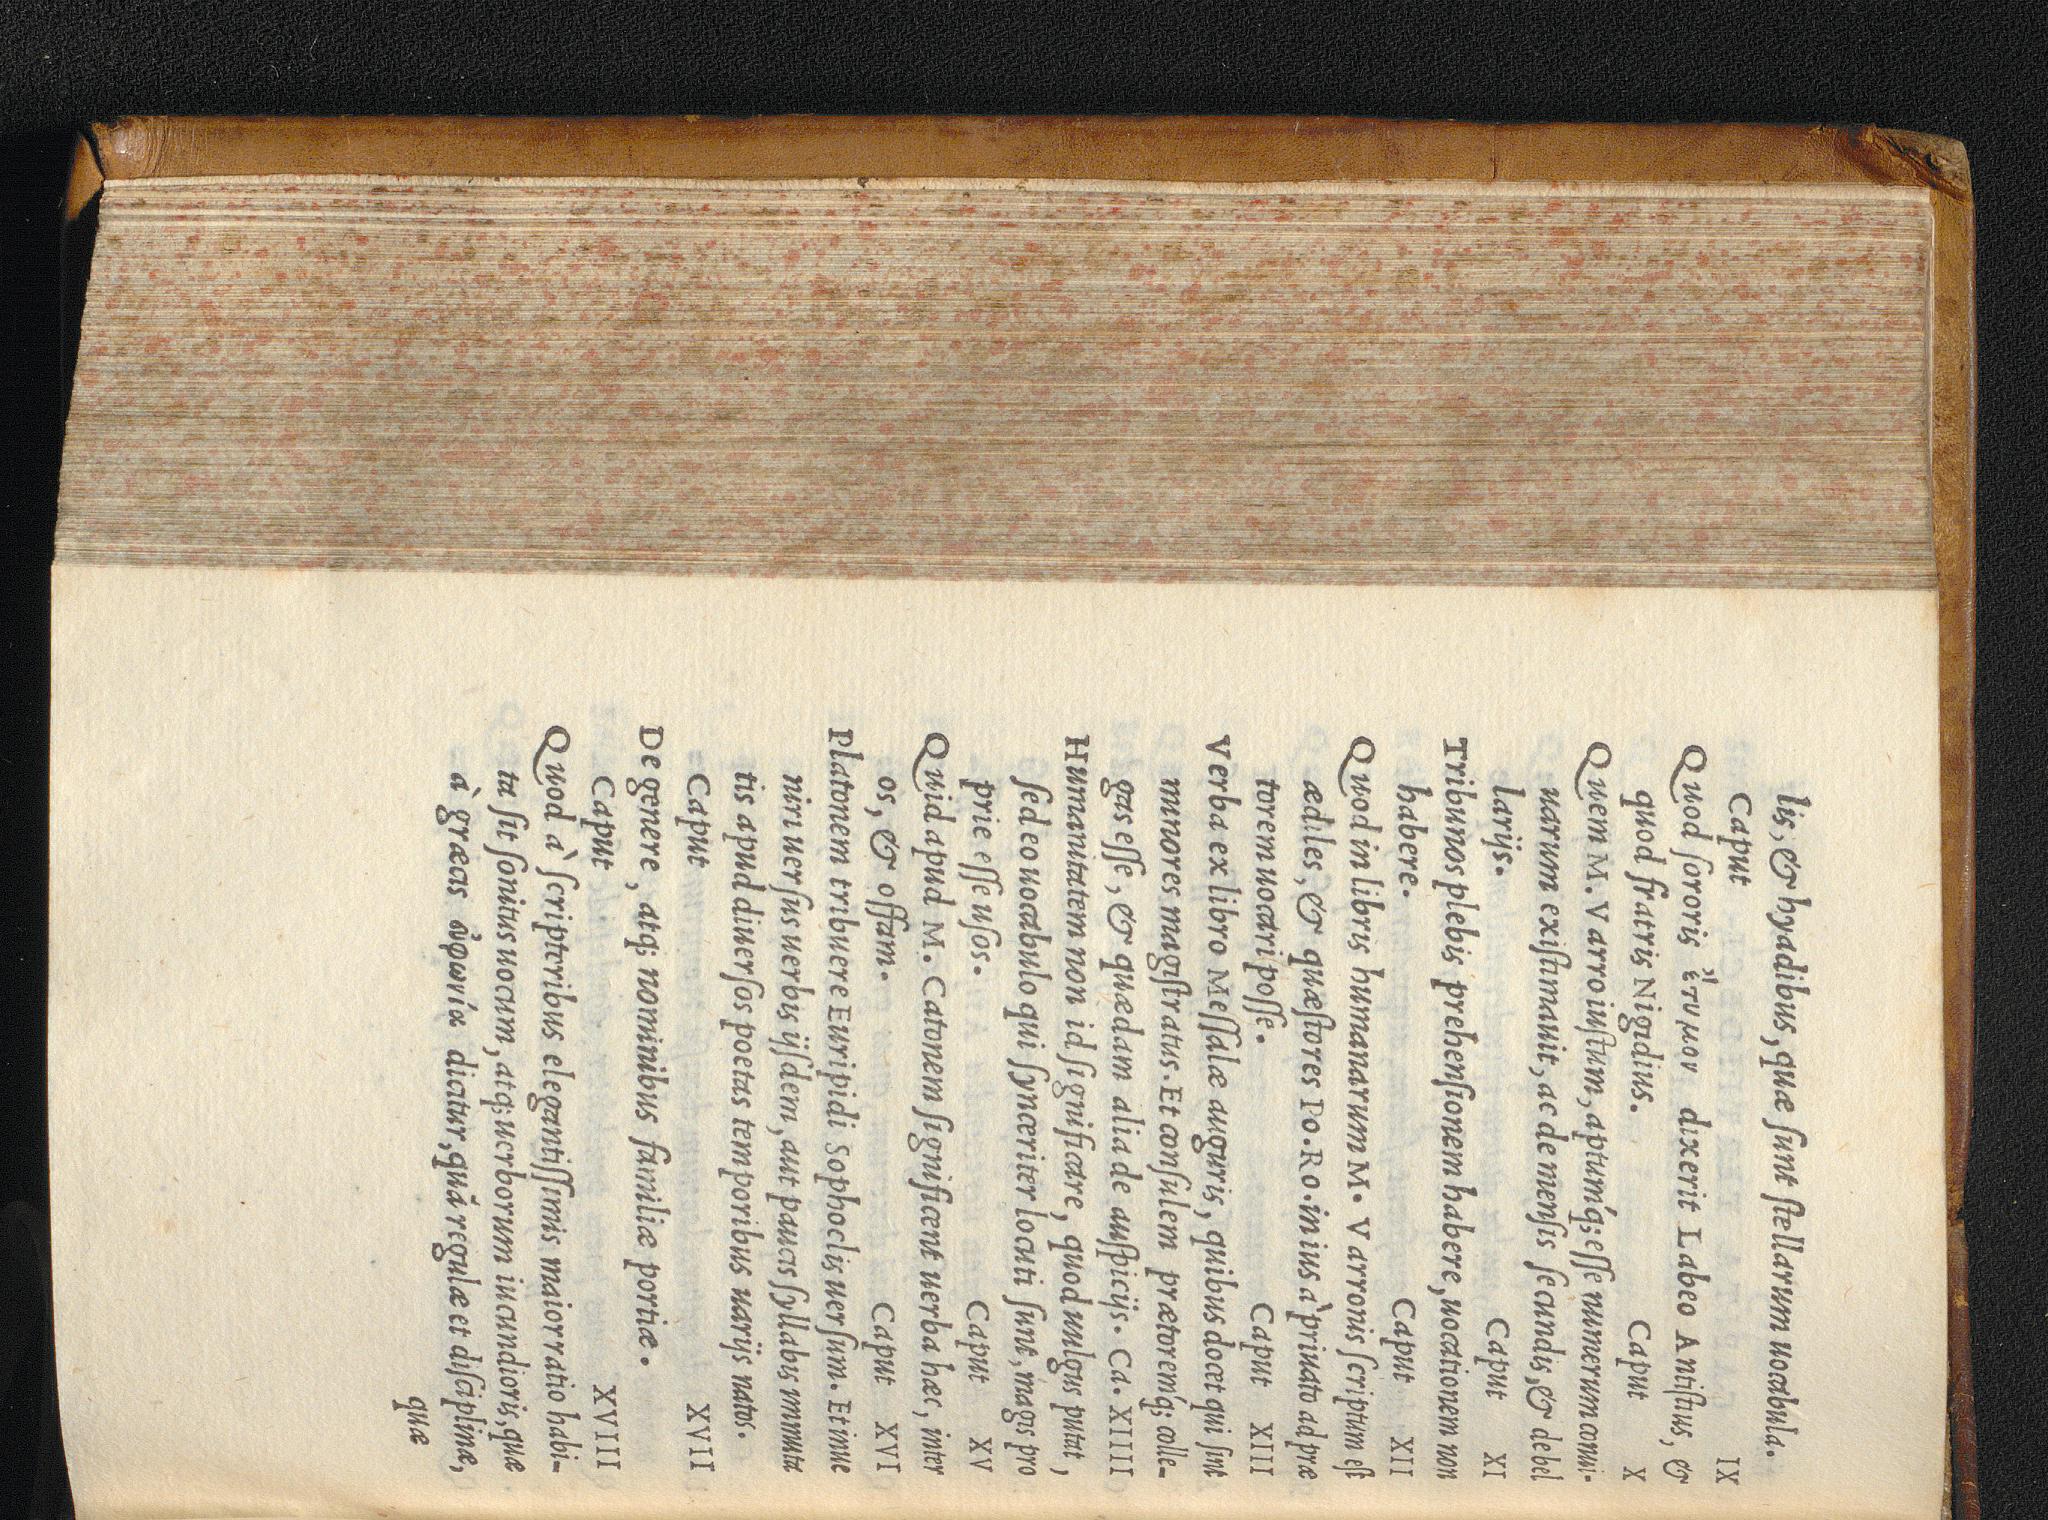 lis, & hyadibus, quæ ſunt ſtellarum uocabula.
Caput IX
Quod ſororis ἔτυμον dixerit Labeo Antiſtius, &
quod fratris Nigidius. Caput X
Quem M. Varro iuſtum, aptumq́; eſſe numerum conui-
uarum exiſtimauit, ac de menſis ſecundis, & de bel
larijs. Caput XI
Tribunos plebis prehenſionem habere, uocationem non
habere. Caput XII
Quod in libris humanarum M. Varronis ſcriptum eſt
ædiles, & quæſtores Po. Ro. in ius à priuato ad præ
torem uocari poſſe. Caput XIII
Verba ex libro Meſſalæ auguris, quibus docet qui ſint
minores magiſtratus. Et conſulem prætoremq́; colle-
gas eſſe, & quædam alia de auſpicijs. Ca. XIIII
Humanitatem non id ſignificare, quod uulgus putat,
ſed eo uocabulo qui ſynceriter locuti ſunt, magis pro
prie eſſe uſos. Caput XV
Quid apud M. Catonem ſignificent uerba hæc, inter
os, & offam. Caput XVI
Platonem tribuere Euripidi Sophoclis uerſum. Et inue
niri uerſus uerbis ijſdem, aut paucis ſyllabis immuta
tis apud diuerſos poetas temporibus uarijs natos.
Caput XVII
De genere, atq; nominibus familiæ portiæ.
Caput XVIII
Quod à ſcriptoribus elegantiſſimis maior ratio habi-
ta ſit ſonitus uocum, atq; uerborum iucundioris, quæ
à græcis ἐυφωνία dicitur, quā́ regulæ et diſciplinæ,
quæ